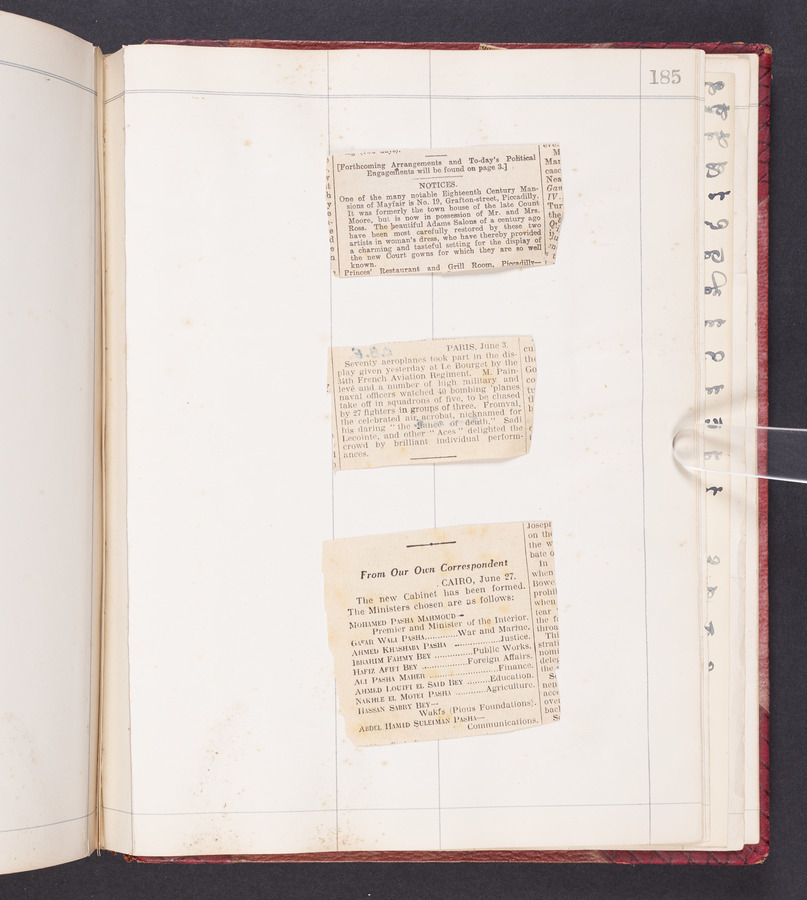 185
[Forthcoming Arrangements and To-day's Political
Engagements will be found on page 3.]
NOTICES.
One of the many notable Eighteenth Century Man-
sions of Mayfair is No. 19, Grafton-street, Piccadilly.
It was formerly the town house of the late Count
Moore, but is now in possession of Mr. and Mrs.
Ross. The beautiful Adams Salons of a century ago
have been most carefully restored by these two
artists in woman's dress, who have thereby provided
a charming and tasteful setting for the display of
the new Court gowns for which they are so well
known.
Princes' Restaurant and Grill Room, Piccadilly—
PARIS, June 3.
Seventy aeroplanes took part in the dis-
play given yesterday at Le Bourget by the
34th French Aviation Regiment. M. Pain-
levé and a number of high military and
naval officers watched 40 bombing 'planes
take off in squadrons of five, to be chased
by 27 fighters in groups of three. Fromval,
the celebrated air acrobat, nicknamed for
his daring "the dance of death," Sadi
Lecointe, and other "Aces" delighted the
crowd by brilliant individual perform-
ances.
From Our Own Correspondent
CAIRO, June 27.
The new Cabinet has been formed.
The Ministers chosen are as follows:
MOHAMED PASHA MAHMOUD—
Premier and Minister of the Interior.
GAFAR WALI PASHA............War and Marine.
AHMED KHASHABA PASHA ................Justice.
IBRAHIM FAHMY BEY ..............Public Works.
HAFIZ AFIFI BEY ..................Foreign Affairs.
ALI PASHA MAHER ........................Finance.
AHMED LOUTFI EL SAID BEY .........Education.
NAKHLE EL MOTEI PASHA ............Agriculture.
HASSAN SABRY BEY—
Wakfs (Pious Foundations).
ABDEL HAMID SULEIMAN PASHA—
Communications.